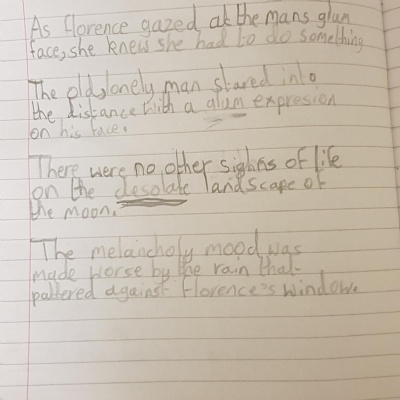 As florence gazed at the mans glum
face, she knew she had to do something
The old, lonely man stared into
the distance with a glum expresion
on his face.
There were no other sighns of life
on the desolate landscape of
the moon.
The melancholy mood was
made worse by the rain that
pattered against florence's window.